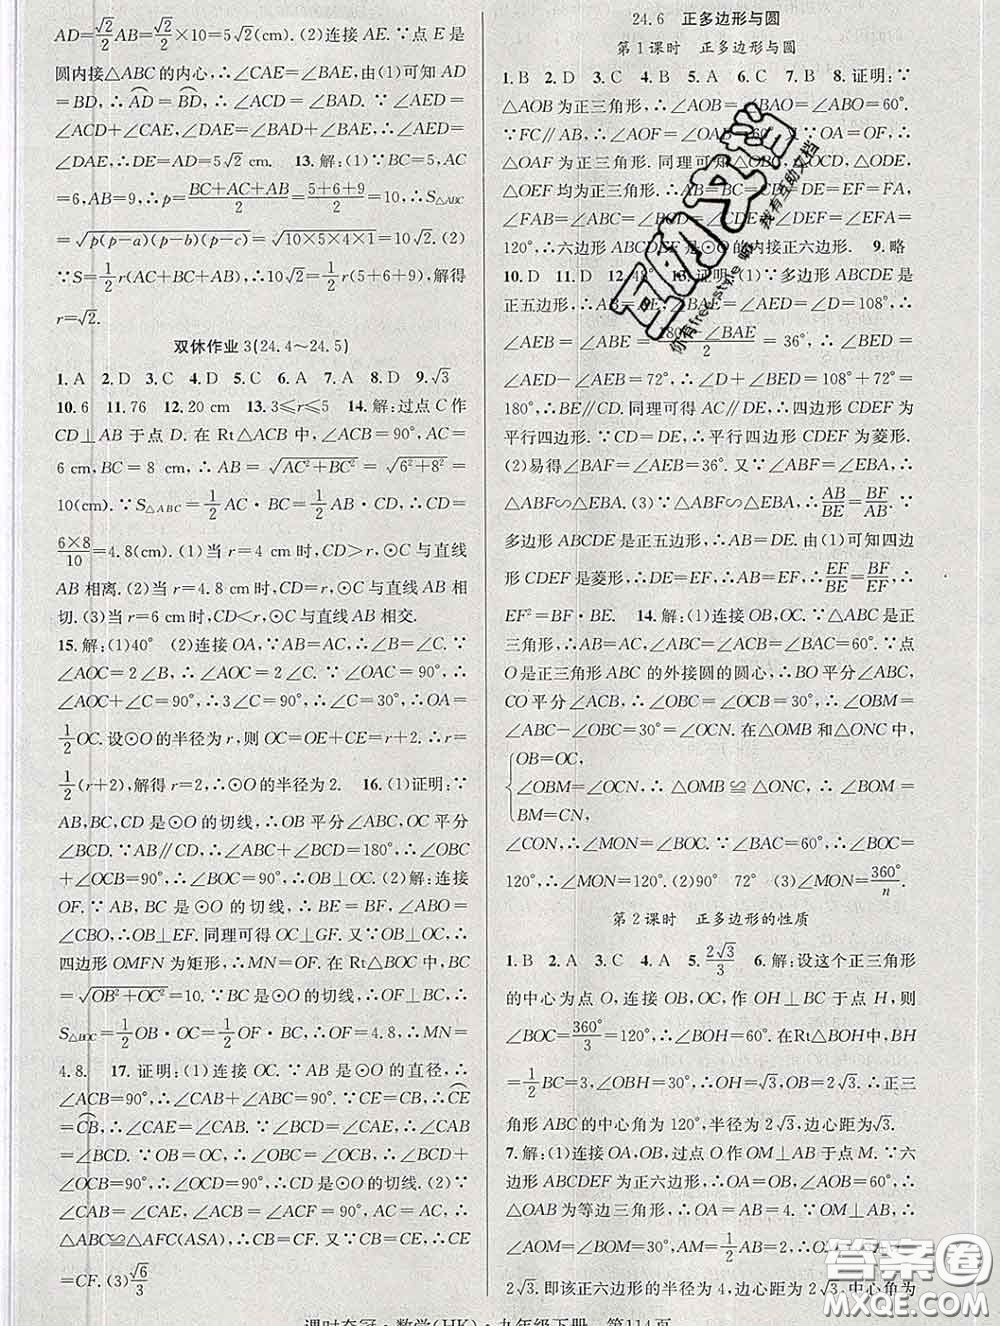 AD=√2/2AB=√2/2×10=5√2(cm). (2)连接 AE. ∵点 E 是
圆内接△ABC的内心,∴∠CAE=∠BAE. 由(1)可知 AD
=BD,∴AD=BD,∴∠ACD=∠BAD. ∵∠AED=
∠ACD+∠CAE,∠DAE=∠BAD+∠BAE,∴∠AED=
∠DAE,∴DE=AD=5√2 cm. 13.解:(1)∵BC=5,AC
=6,AB=9,∴p=(BC+AC+AB)/2=(5+6+9)/2=10,∴S△ABC
=√p(p-a)(p-b)(p-c)=√10×5×4×1=10√2. (2)
∵S=1/2r(AC+BC+AB),∴10√2=1/2r(5+6+9),解得
r=√2.
双休作业 3(24.4～24.5)
1.A 2.D 3.C 4.D 5.C 6.A 7.A 8.D 9.√3
10.6 11.76 12.20 cm 13.3≤r≤5 14.解:过点 C 作
CD⊥AB 于点 D. 在 Rt△ACB 中,∠ACB=90°,AC=
6 cm,BC=8 cm,∴AB=√AC²+BC²=√6²+8²=
10(cm). ∵S△ABC=1/2AC·BC=1/2AB·CD,∴CD=
6×8/10=4.8(cm). (1)当 r=4 cm 时,CD>r,⊙C 与直线
AB 相离. (2)当 r=4.8 cm 时,CD=r,⊙C 与直线 AB 相
切. (3)当 r=6 cm 时,CD<r,⊙C 与直线 AB 相交.
15.解:(1)40° (2)连接 OA,∵AB=AC,∴∠B=∠C. ∵
∠AOC=2∠B,∴∠AOC=2∠C. ∵∠OAC=90°,∴
∠AOC+∠C=90°,∴3∠C=90°,∴∠C=30°,∴OA=
1/2OC. 设⊙O的半径为 r,则 OC=OE+CE=r+2,∴r=
1/2(r+2),解得 r=2,∴⊙O 的半径为 2. 16.(1)证明:∵
AB,BC,CD 是⊙O 的切线,∴OB 平分∠ABC,OC 平分
∠BCD. ∵AB∥CD,∴∠ABC+∠BCD=180°,∴∠OBC
+∠OCB=90°,∴∠BOC=90°,∴OB⊥OC. (2)解:连接
OF. ∵AB,BC 是⊙O 的切线,∴BE=BF,∠ABO=∠CBO,
∴OB⊥EF. 同理可得 OC⊥GF. 又∵OB⊥OC,∴
四边形 OMFN 为矩形,∴MN=OF. 在Rt△BOC 中,BC
=√OB²+OC²=10. ∵BC 是⊙O 的切线,∴OF⊥BC,∴
S△BOC=1/2OB·OC=1/2OF·BC,∴OF=4.8,∴MN=
4.8. 17.证明:(1)连接 OC. ∵AB 是⊙O 的直径,∴
∠ACB=90°,∴∠CAB+∠ABC=90°. ∵CE=CB,∴CE
=CB,∴∠CAE=∠CAB. ∵∠BCD=∠CAE,∴∠CAB=
∠BCD. ∵OC=OB,∴∠OCB=∠OBC,∴∠OCB+
∠BCD=90°,∴∠OCD=90°,∴CD 是⊙O 的切线. (2)∵
∠CAE=∠CAB,∠ACB=∠ACF=90°,AC=AC,∴
△ABC≌△AFC(ASA),∴CB=CF. 又∵CB=CE,∴CE
=CF. (3)√6/3
24.6 正多边形与圆
第 1 课时 正多边形与圆
1.B 2.D 3.C 4.B 5.A 6.C 7.B 8.证明:∵
△AOB 为正三角形,∴∠AOB=∠BAO=∠ABO=60°.
∵FC∥AB,∴∠AOF=∠OAB=60°. ∵OA=OF,∴
△OAF 为正三角形. 同理可知△OBC,△OCD,△ODE,
△OEF 均为正三角形,∴AB=BC=CD=DE=EF=FA,
∠FAB=∠ABC=∠BCD=∠CDE=∠DEF=∠EFA=
120°,∴六边形 ABCDEF 是⊙O 的内接正六边形. 9.略
10.D 11.D 12.48° 13.证明:(1)∵多边形 ABCDE 是
正五边形,∴AB=AE,∠BAE=∠D=108°,∴
∠ABE=∠AEB=(180°-∠BAE)/2=36°,∴∠BED=
∠AED-∠AEB=72°,∴∠BED+∠D=72°+108°=
180°,∴BE∥CD. 同理可得 AC∥DE,∴四边形 CDEF 为
平行四边形. ∵CD=DE,∴平行四边形 CDEF 为菱形.
(2)易得∠BAF=∠AEB=36°. 又∵∠ABF=∠EBA,
∴△ABF∽△EBA. (3)∵△ABF∽△EBA,∴AB/BE=BF/AB. ∵
多边形 ABCDE 是正五边形,∴AB=DE. 由(1)可知四边
形 CDEF 是菱形,∴DE=EF,∴AB=EF,∴EF/BE=BF/EF,∴
EF²=BF·BE. 14.解:(1)连接 OB,OC. ∵△ABC 是正
三角形,∴AB=AC,∠ABC=∠ACB=∠BAC=60°. ∵点
O 是正三角形 ABC 的外接圆的圆心,∴BO 平分∠ABC,
CO 平分∠ACB,∴∠OBC=∠OCB=30°,∴∠OBM=
∠ABC-∠OBC=30°=∠OCN. 在△OMB 和△ONC 中,
OB=OC,
∠OBM=∠OCN,∴△OMB≌△ONC(SAS),∴∠BOM=
BM=CN,
∠CON,∴∠MON=∠BOC. ∵∠BAC=60°,∴∠BOC=
120°,∴∠MON=120°. (2)90° 72° (3)∠MON=360°/n.
第 2 课时 正多边形的性质
1.B 2.A 3.C 4.A 5.2√3/3 6.解:设这个正三角形
的中心为点 O,连接 OB,OC,作 OH⊥BC 于点 H,则
∠BOC=360°/3=120°,∴∠BOH=60°. 在Rt△BOH中,BH
=1/2BC=3,∠OBH=30°,∴OH=√3,OB=2√3. ∴正三
角形 ABC 的中心角为 120°,半径为 2√3,边心距为√3.
7.解:(1)连接 OA,OB,过点 O 作 OM⊥AB 于点 M. ∵六
边形 ABCDEF 为正六边形,∴∠AOB=60°. ∵OA=OB,
∴△OAB 为等边三角形,∴OA=AB=4. ∵OM⊥AB,∴
∠AOM=∠BOM=30°,AM=1/2AB=2,
2√3,即该正六边形的半径为 4,边心距为 2√3,边心角为
课时夺冠·数学(HK)·九年级下册 第114页
互助文档
你有freestyle嘛,我有互助文档
答案圈
MXQE.COM